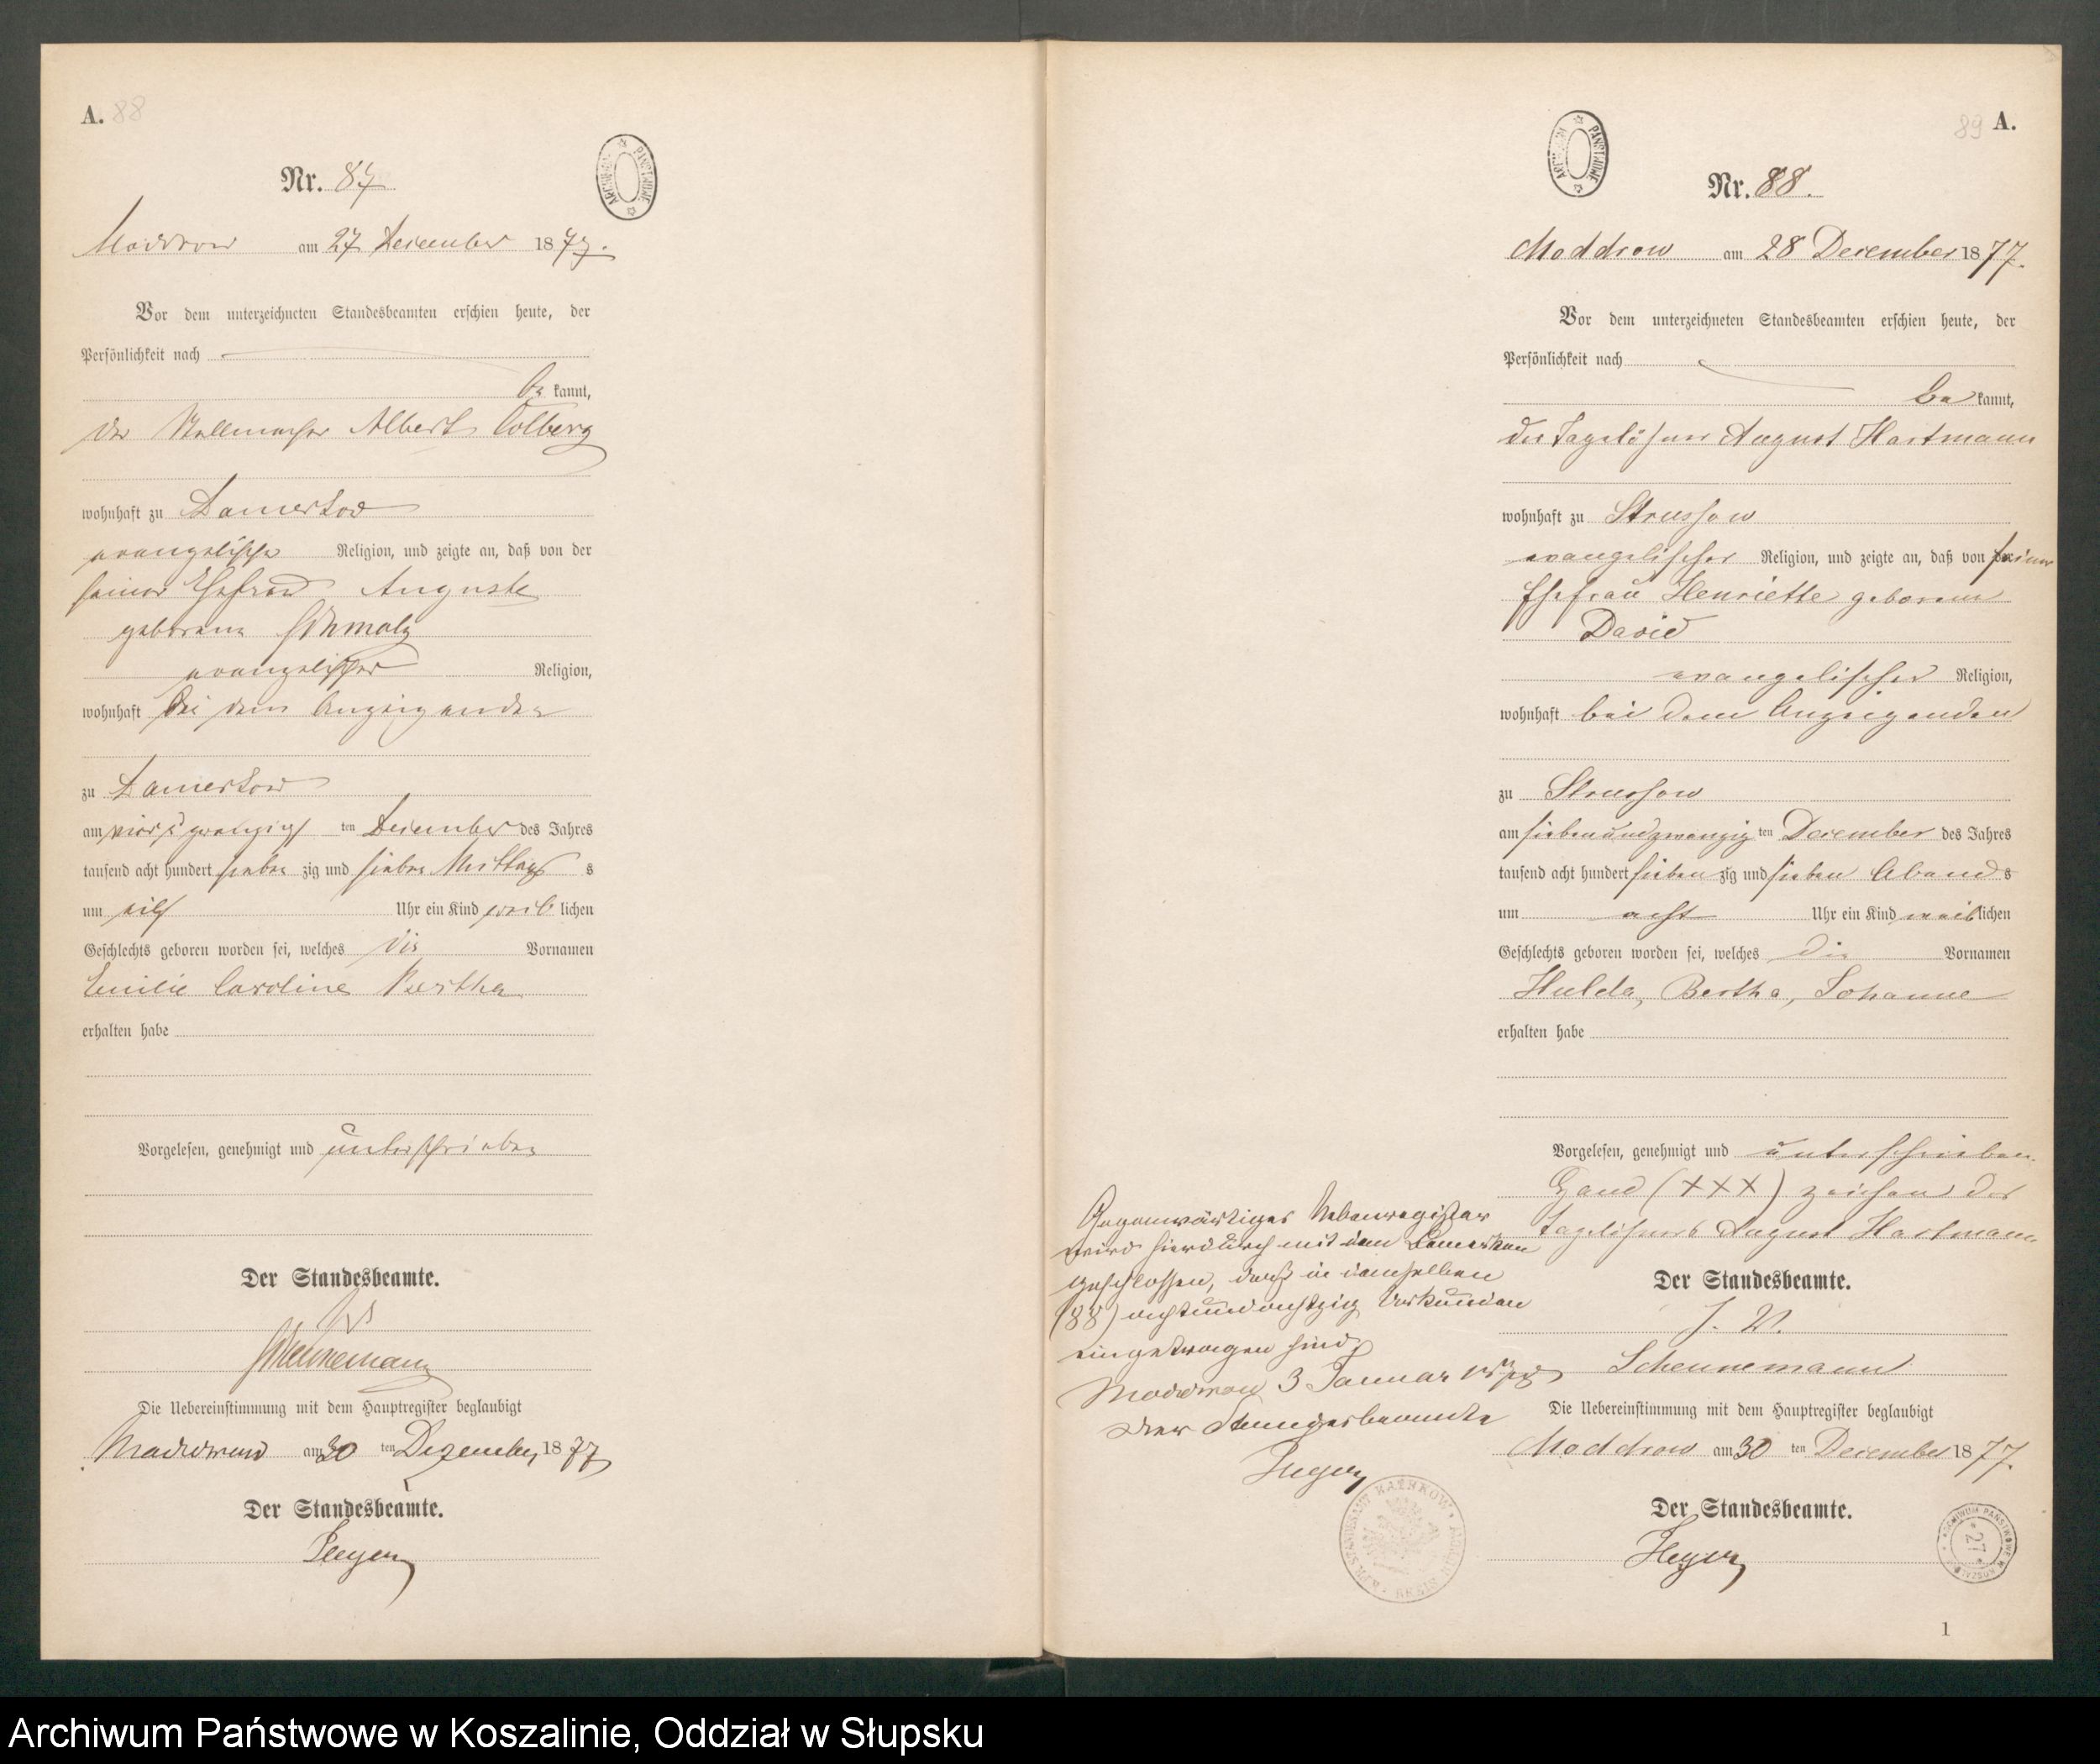 A. 88
Nr. 87
Moddrow am 27 December 1877.
Vor dem unterzeichneten Standesbeamten erschien heute, der
Persönlichkeit nach
be kannt,
der Stellmacher Albert Colberg
wohnhaft zu Damerkow
evangelischer Religion, und zeigte an, daß von der
seiner Ehefrau Auguste
geborene Schmolz
evangelischer Religion,
wohnhaft bei dem Anzeigenden
zu Damerkow
am vier u zwanzigsten December des Jahres
tausend acht hundert sieben zig und sieben Mittags
um elf Uhr ein Kind weiblichen
Geschlechts geboren worden sei, welches die Vornamen
Emilie Caroline Bertha
erhalten habe
Vorgelesen, genehmigt und unterschrieben
Der Standesbeamte.
Scheunemann
Die Uebereinstimmung mit dem Hauptregister beglaubigt
Moddrow am 30 ten Dezember 1877
Der Standesbeamte.
Heyer
89 A.
ARCHIWUM PAŃSTWOWE
Nr. 88.
Moddrow am 28 December 1877.
Vor dem unterzeichneten Standesbeamten erschien heute, der
Persönlichkeit nach
be kannt,
der Tagelöhner August Hartmann
wohnhaft zu Strussow
evangelischer Religion, und zeigte an, daß von seiner
Ehefrau Henriette geborene
David
evangelischer Religion,
wohnhaft bei dem Anzeigenden
zu Strussow
am siebenundzwanzig ten December des Jahres
tausend acht hundert sieben zig und sieben Abends
um acht Uhr ein Kind weiblichen
Geschlechts geboren worden sei, welches die Vornamen
Hulda, Bertha, Johanne
erhalten habe
Vorgelesen, genehmigt und unterschrieben
Hand (XXX) zeichen des
Tagelöhners August Hartmann
Der Standesbeamte.
J. V.
Scheunemann
Die Uebereinstimmung mit dem Hauptregister beglaubigt
Moddrow am 30 ten December 1877.
Der Standesbeamte.
Heyer
Gegenwärtiges Nebenregister
wird hierdurch mit dem Bemerken
geschlossen, daß in demselben
(88) achtundachtzig Urkunden
eingetragen sind
Moddrow 3 Januar 1878
Der Standesbeamte
Heyer
1
Archiwum Państwowe w Koszalinie, Oddział w Słupsku